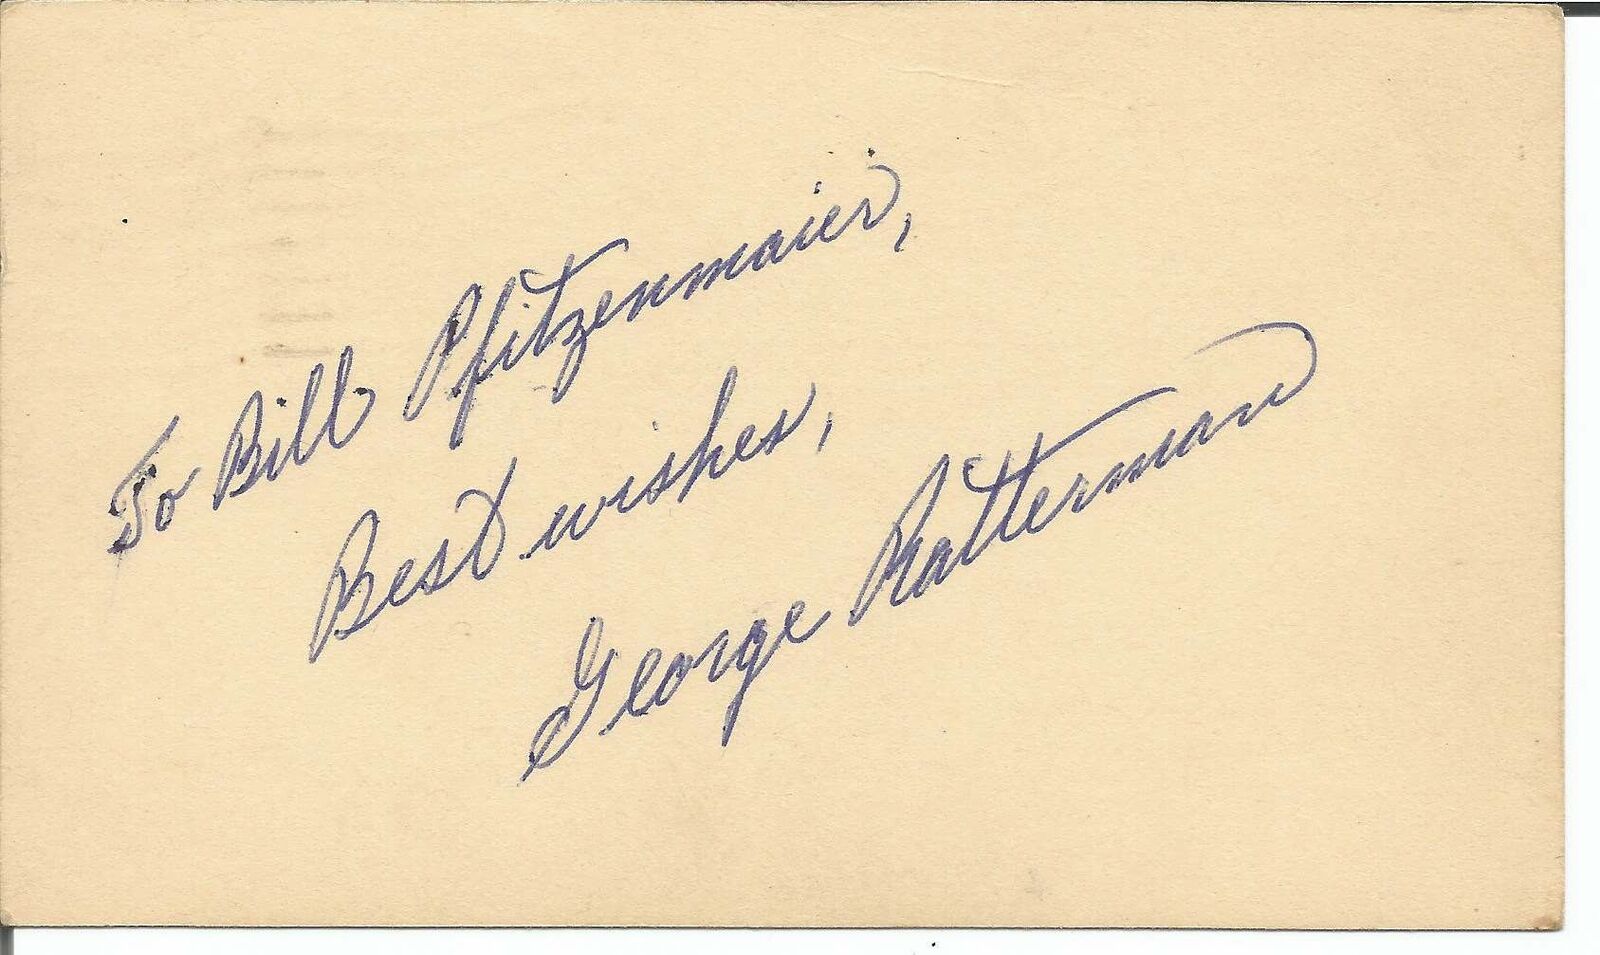 To Bill Pfitzenmaier,
Best wishes,
George Ratterman